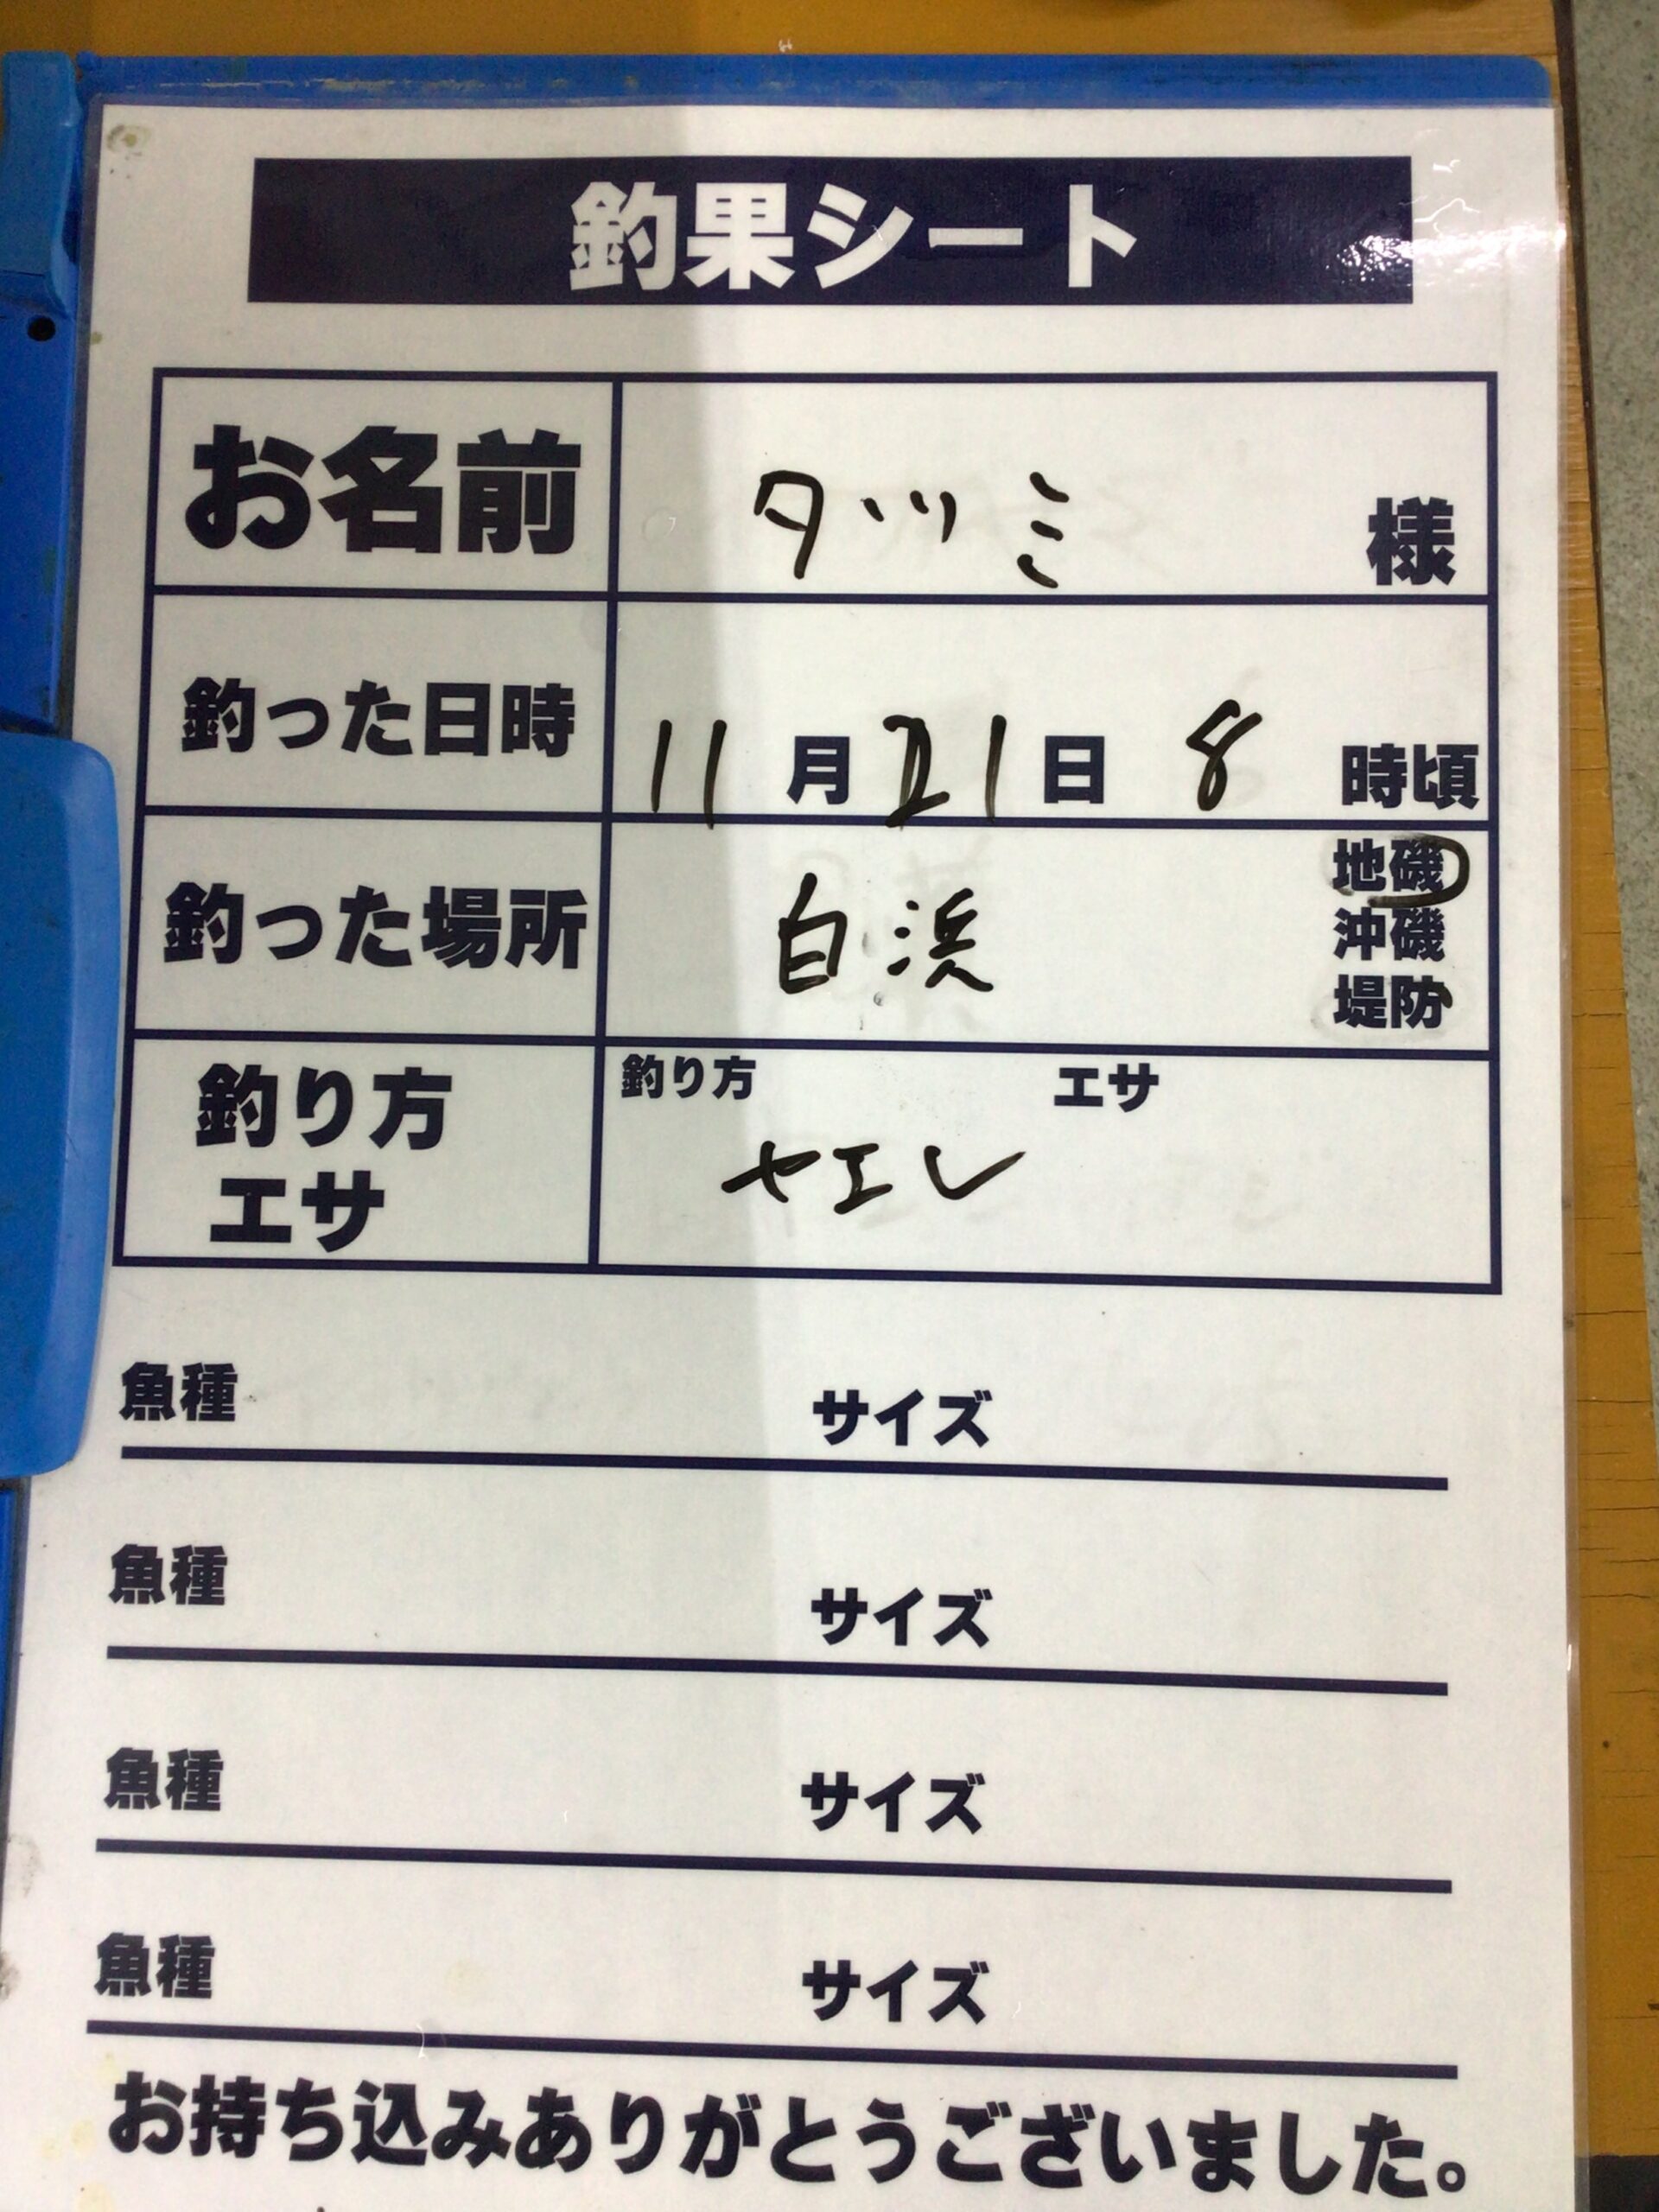 釣果シート
お名前 タツミ 様
釣った日時 11月21日 8時頃
釣った場所 白浜 地磯
沖磯
堤防
釣り方 エサ
釣り方
エサ
ヤエン
魚種 サイズ
魚種 サイズ
魚種 サイズ
魚種 サイズ
お持ち込みありがとうございました。